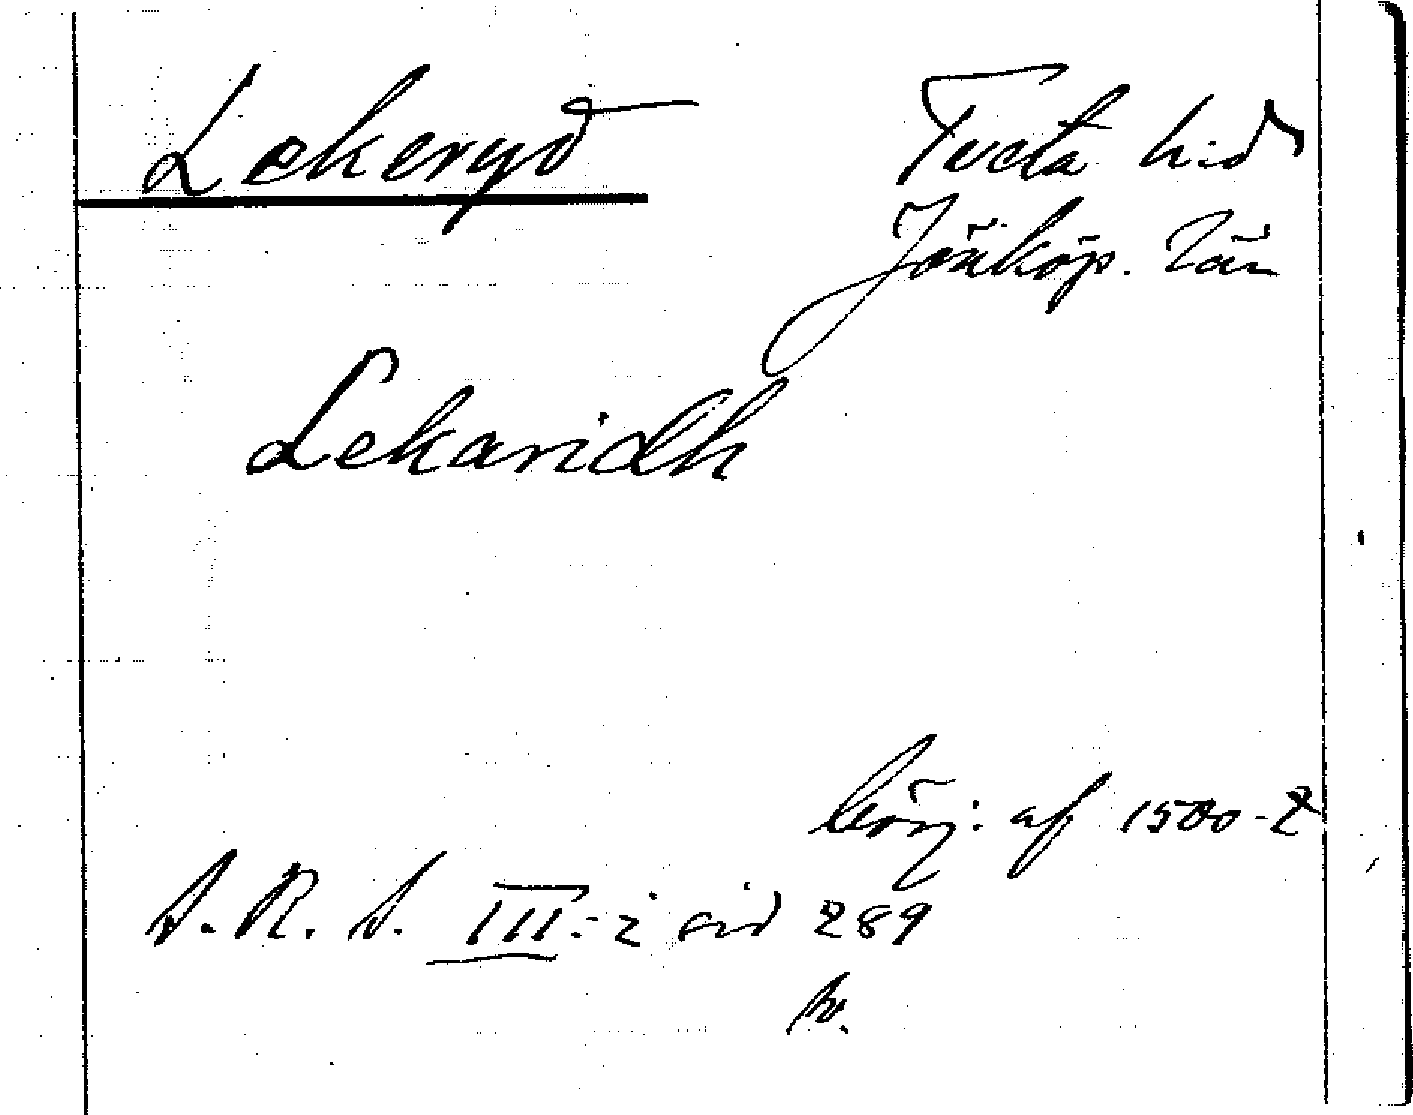 Lekeryd
Tveta h:d
Jönköp. län
Lekaridh
börj: af 1500-t
S. R. S. III:2 sid 289